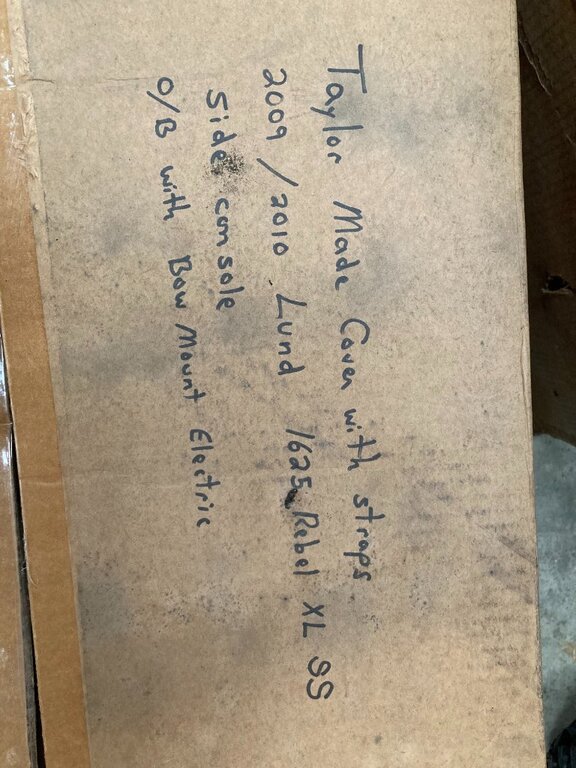 Taylor Made Cover with straps
2009/2010 Lund 1625 Rebel XL SS
Side console
O/B with Bow Mount Electric